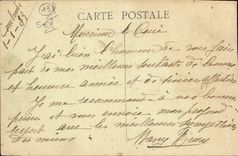 CARTE POSTALE
Monsieur le Curé
J'ai bien l'honneur de vous faire
part de mes meilleurs souhaits de bonne
et heureuse année et de sincère affection
Je me recommande à vos bonnes
prières et vous envoie mon profond
respect avec les meilleures sympathies
des miens